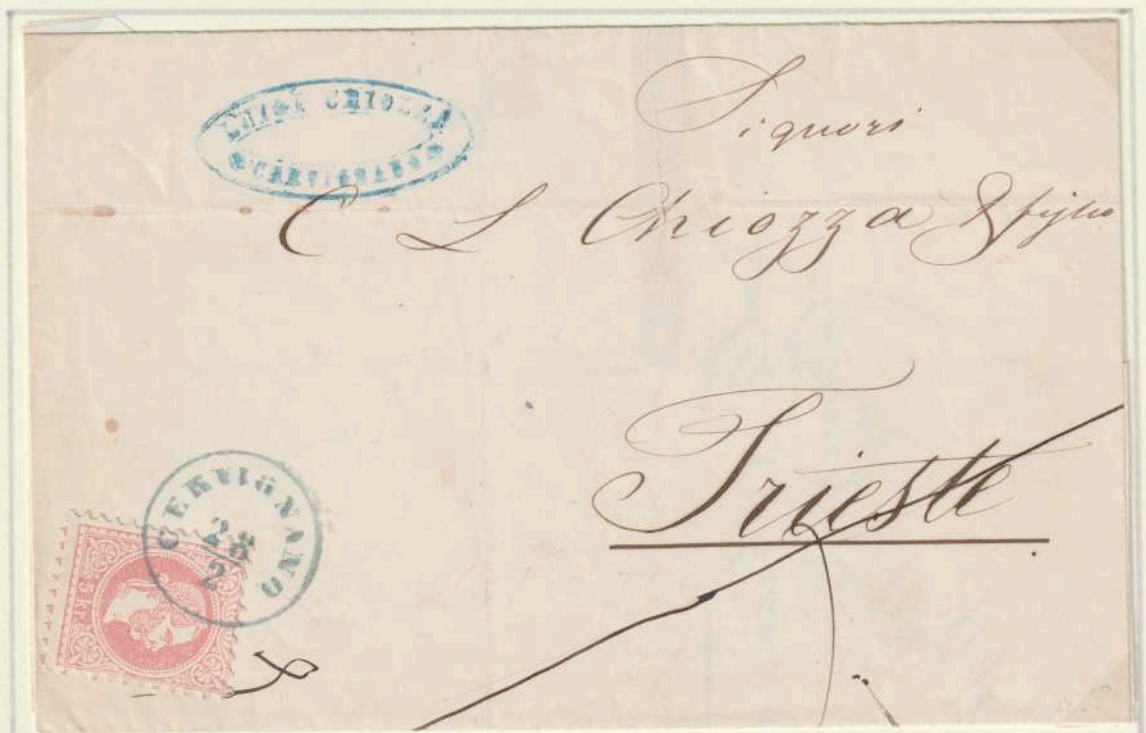 LUIGI CHIOZZA
CERVIGNANO
Signori
C L Chiozza & figlio
Trieste
CERVIGNANO
28
2
5 KR